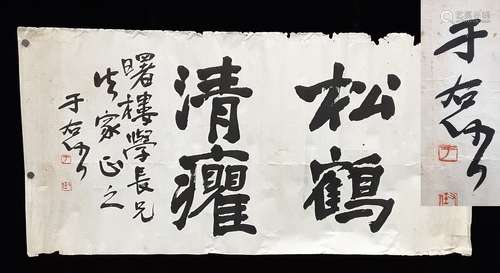 松鶴
清癯
曙樓學長兄
家正之
于右任
于右任